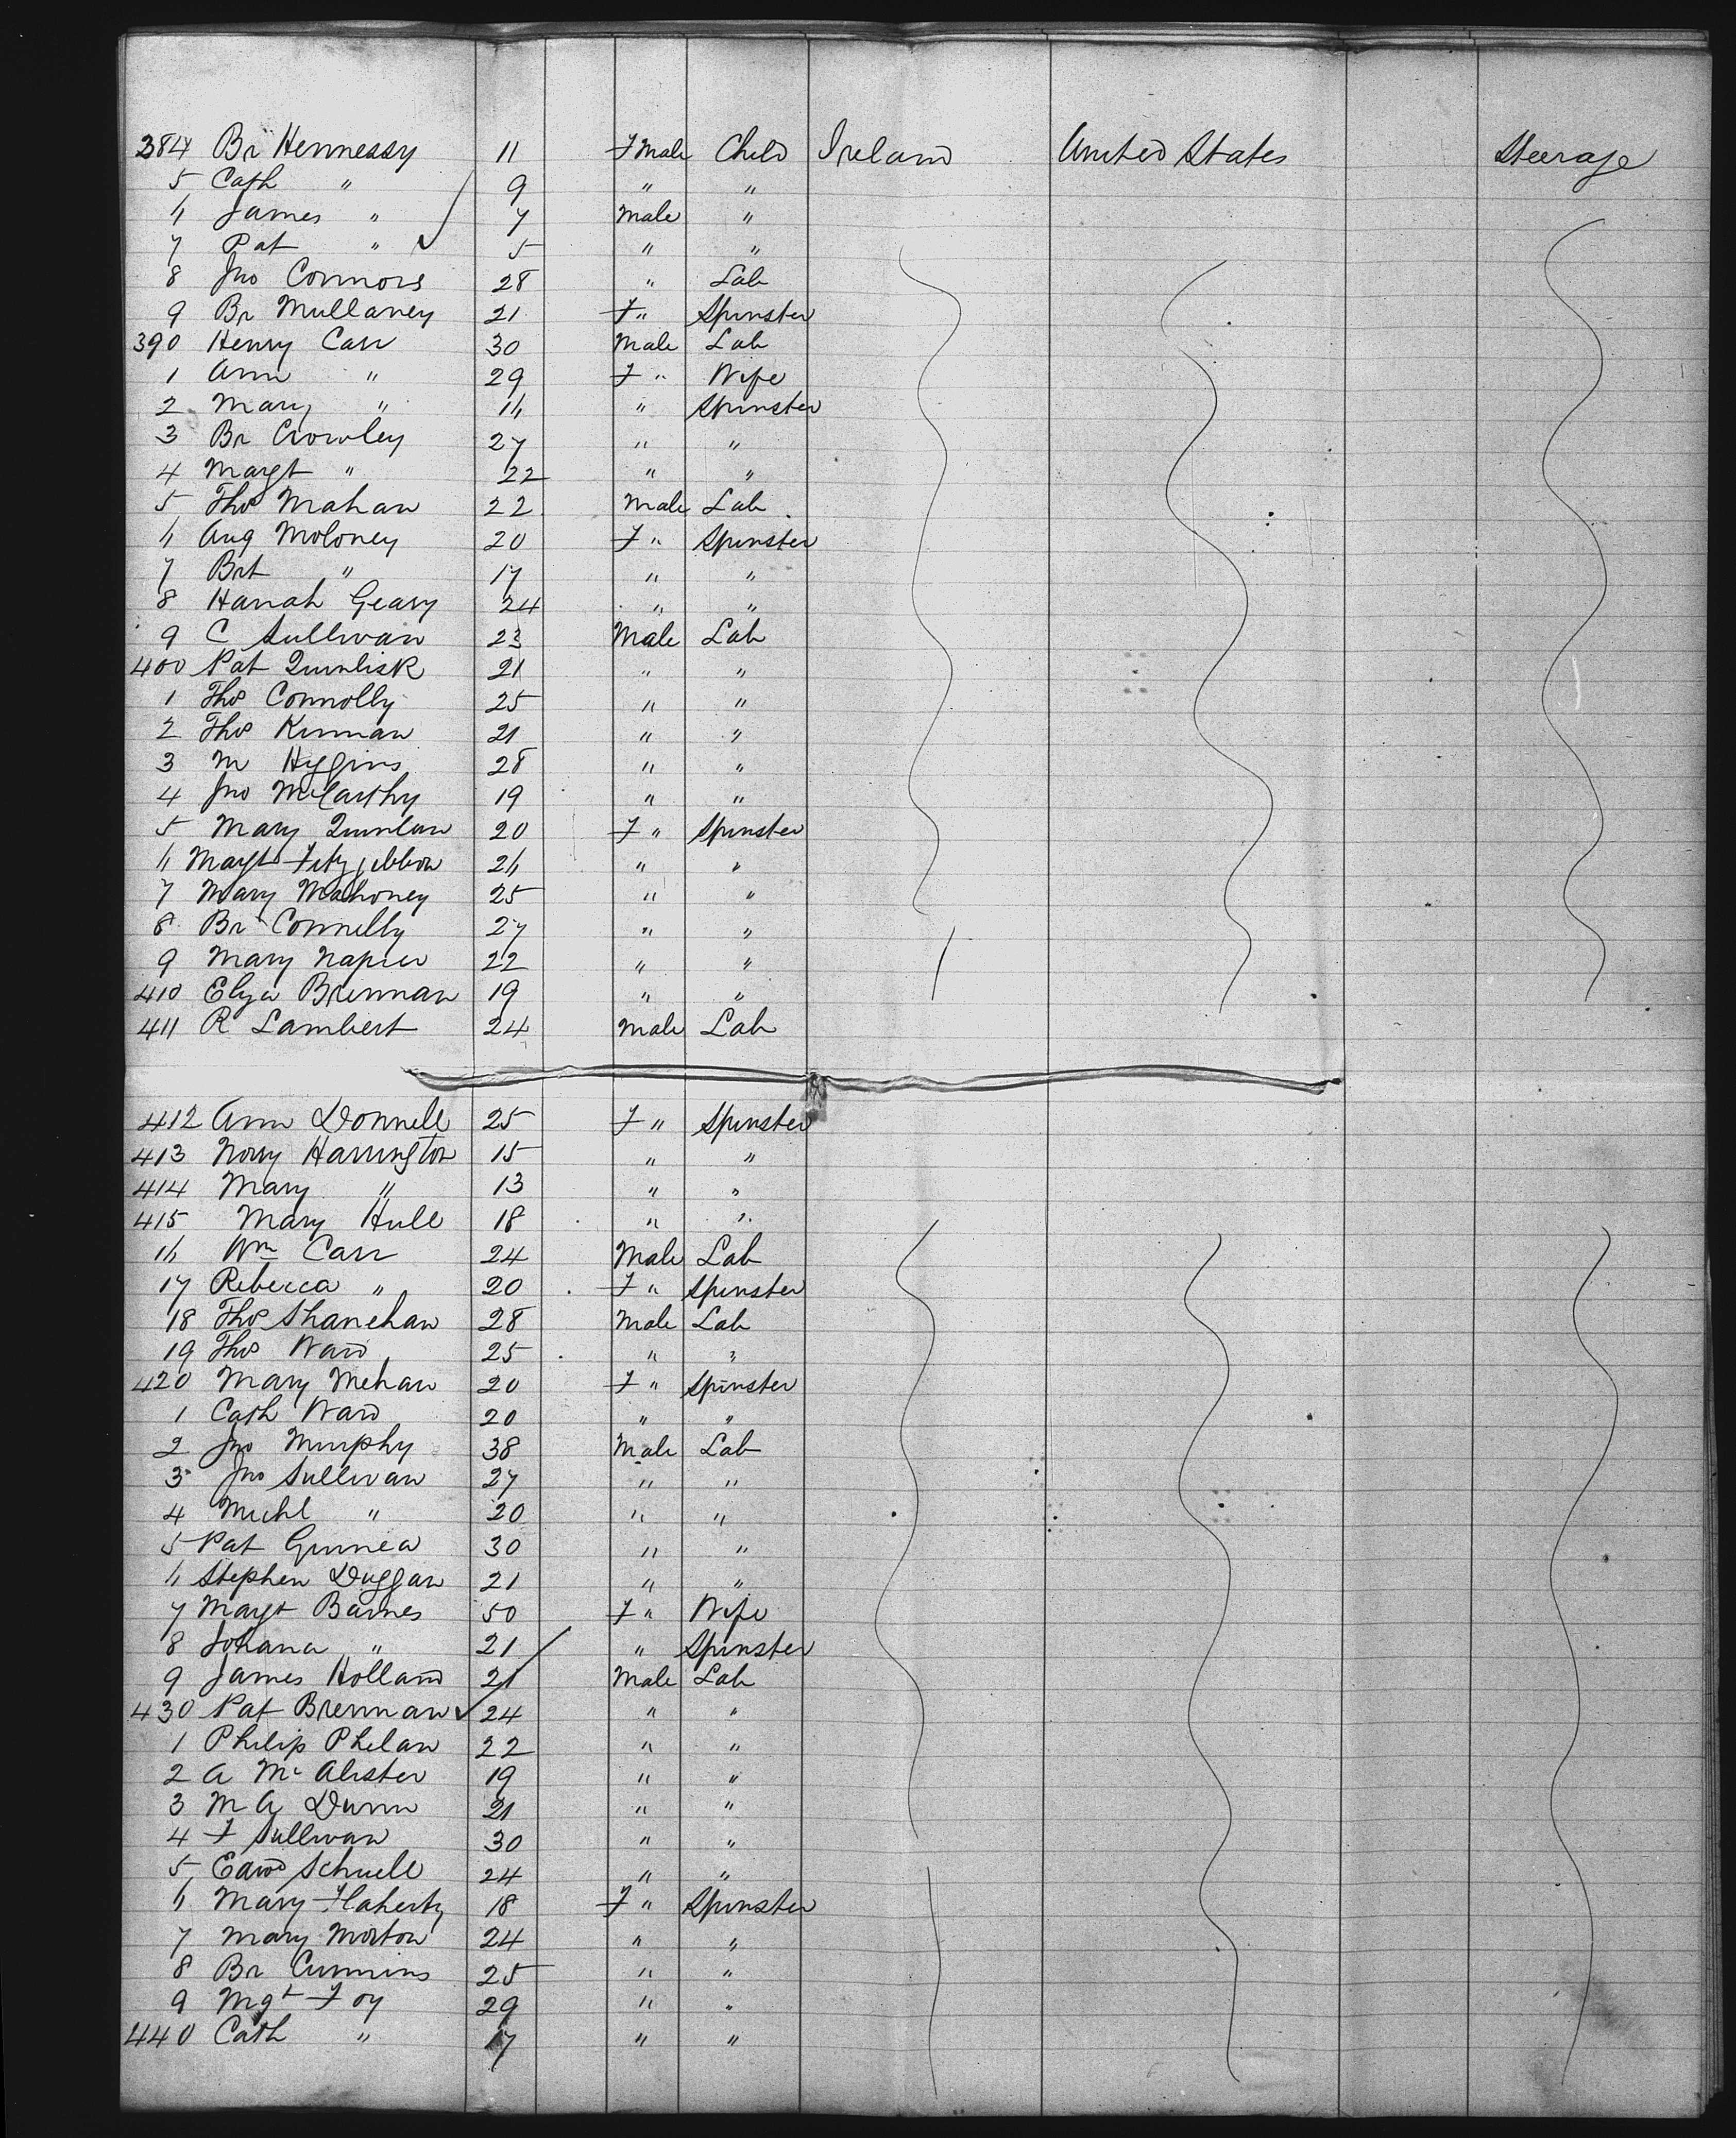 384 Br Hennessy 11 Fmale Child Ireland United States Steerage
5 Cath " 9 " "
6 James " 7 Male "
7 Pat " 5 " "
8 Jno Connors 28 " Lab
9 Br Mullaney 21 F " Spinster
390 Henry Carr 30 Male Lab
1 Ann " 29 F " Wife
2 Mary " 16 " Spinster
3 Br Crowley 27 " "
4 Margt " 22 " "
5 Thos Mahan 22 Male Lab
6 Aug Moloney 20 F " Spinster
7 Brt " 17 " "
8 Hanah Geary 24 " "
9 C Sullivan 23 Male Lab
400 Pat Quinlisk 21 " "
1 Thos Connolly 25 " "
2 Thos Kinnan 21 " "
3 M Higgins 28 " "
4 Jno McCarthy 19 " "
5 Mary Quinlan 20 F " Spinster
6 Margt Fitzgibbon 26 " "
7 Mary Mahoney 25 " "
8 Br Connelly 27 " "
9 Mary Napier 22 " "
410 Eliza Brennan 19 " "
411 R Lambert 24 Male Lab
412 Ann Donnell 25 F " Spinster
413 Nory Harrington 15 " "
414 Mary " 13 " "
415 Mary Hull 18 " "
16 Wm Carr 24 Male Lab
17 Rebecca " 20 F " Spinster
18 Thos Shanehan 28 Male Lab
19 Thos Ward 25 " "
420 Mary Mehan 20 F " Spinster
1 Cath Ward 20 " "
2 Jno Murphy 38 Male Lab
3 Jno Sullivan 27 " "
4 Michl " 20 " "
5 Pat Guinea 30 " "
6 Stephen Duggan 21 " "
7 Margt Barnes 50 F " Wife
8 Johana " 21 " Spinster
9 James Holland 21 Male Lab
430 Pat Brennan 24 " "
1 Philip Phelan 22 " "
2 A McAlister 19 " "
3 M A Dunn 21 " "
4 F Sullivan 30 " "
5 Edwd Schuell 24 " "
6 Mary Flaherty 18 F " Spinster
7 Mary Morton 24 " "
8 Br Cummins 25 " "
9 Mgt Foy 29 " "
440 Cath " 17 " "